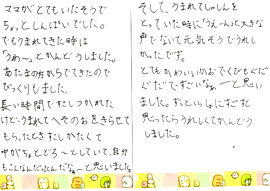 ママがとてもいたそうで
ちょっとしんぱいでした。
でもうまれてきた時は
「うわ〜」とかんどうしました。
あたまの方からでてきたので
びっくりしました。
長い時間ですこしつかれた
けどうまれてへそのおをきらせて
もらったときすこしかたくて
中がちょとどろ〜としていて、自分
もこんなんだったんだな〜と思いました。
そして、うまれてしゃしんを
とっていた時に「うえ〜ん」と大きな
声でないて元気そうでうれし
かったです。
とてもかわいいかおでてくびもだん
だんだですごいなぁ、ーと思い
ました。ずっといっしょにすごすと
思ったらうれしくてかんどう
しました。